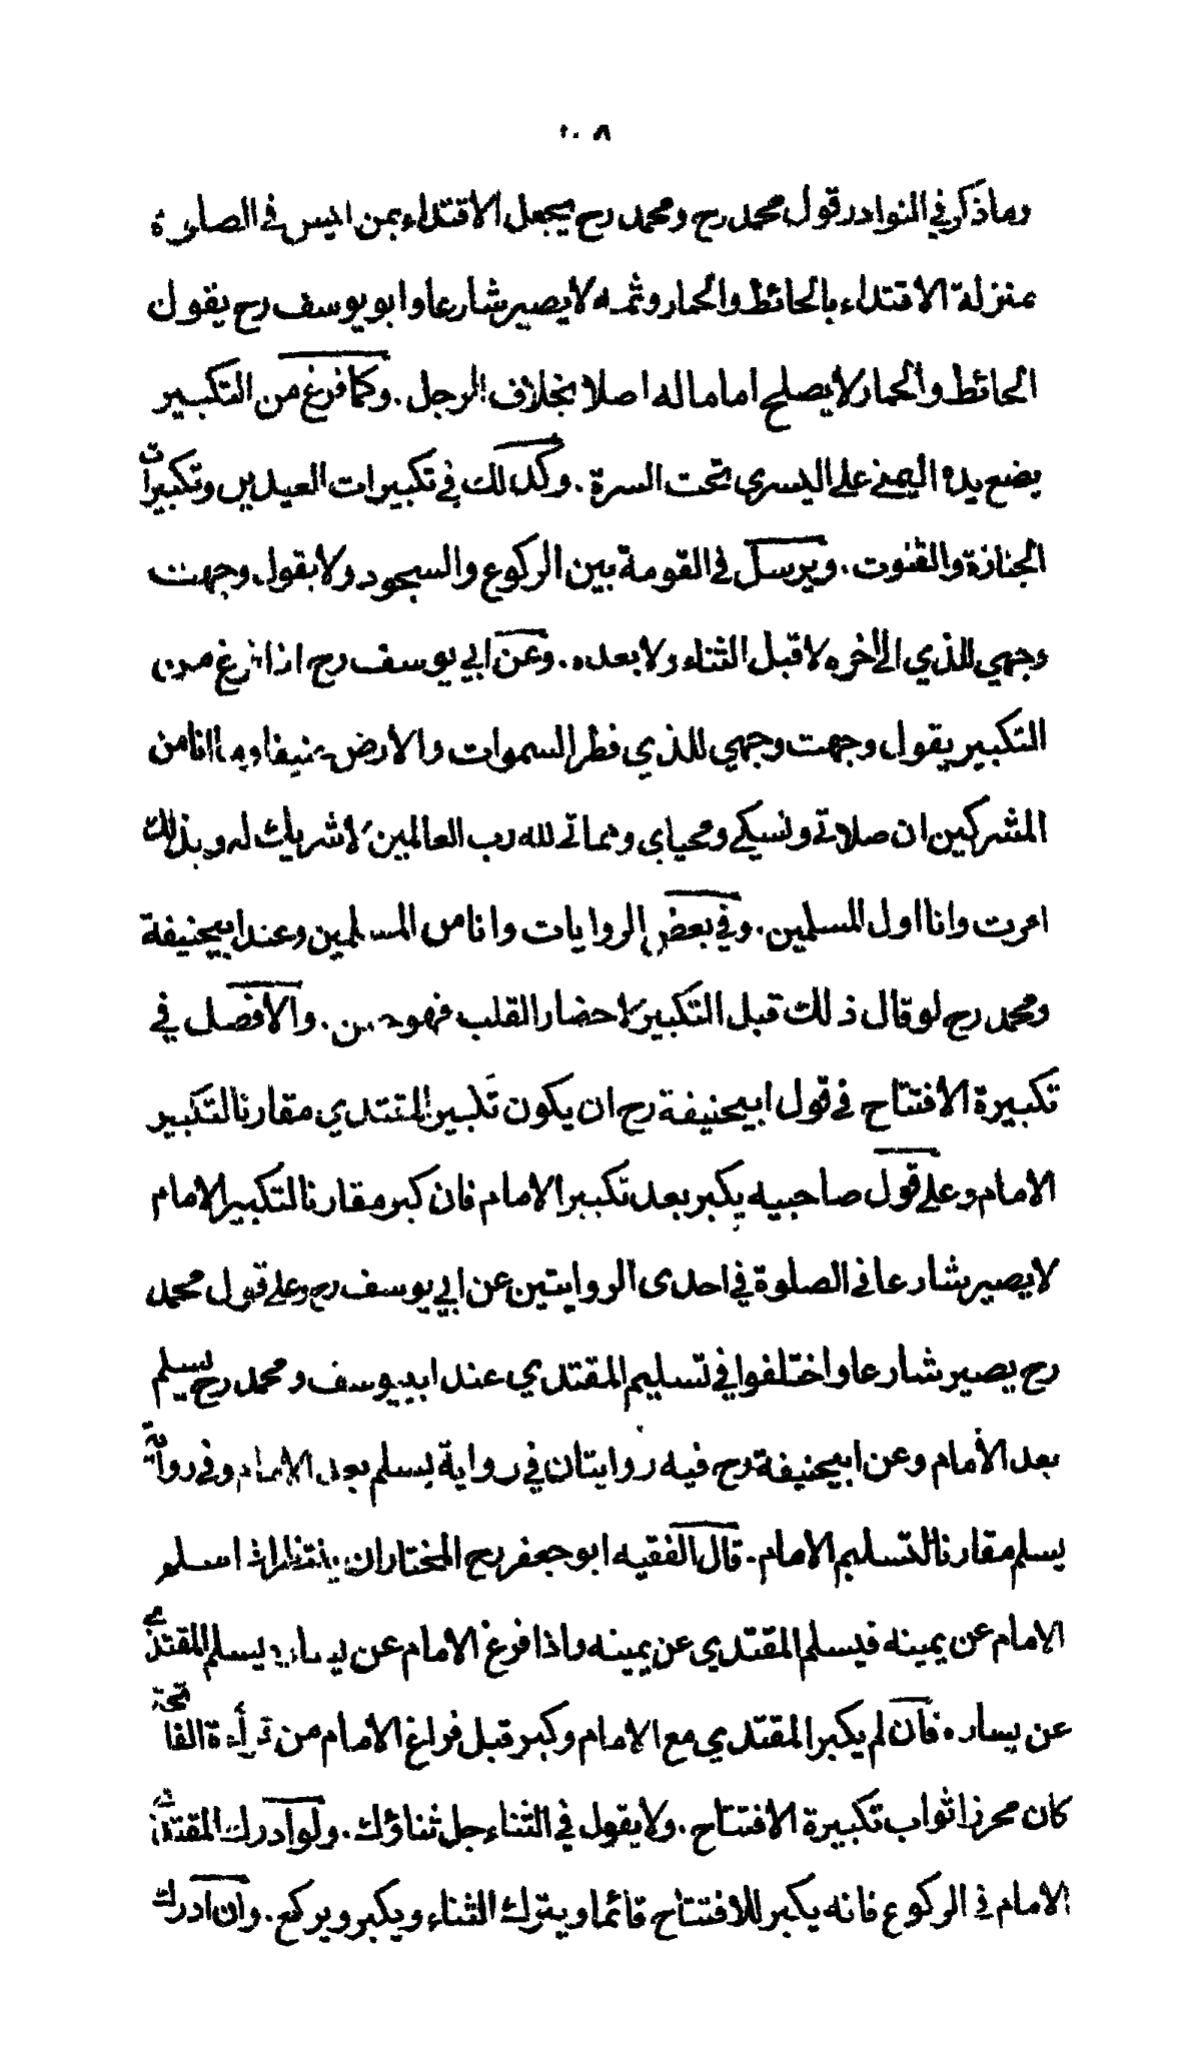 ١٠٨
وما ذكر في النوادر قول محمد رح ومحمد رح يجعل الاقتداء بمن ليس في الصلوة
بمنزلة الاقتداء بالحائط والحمار وثمه لا يصير شارعا وابو يوسف رح يقول
الحائط والحمار لا يصلح اماما له اصلا بخلاف الرجل . وكما فرغ من التكبير
يضع يده اليمنى على اليسرى تحت السرة . وكذلك في تكبيرات العيدين وتكبيرات
الجنازة والقنوت . ويرسل في القومة بين الركوع والسجود ولا يقول وجهت
وجهي للذي الى اخره لا قبل الثناء ولا بعده . وعن ابي يوسف رح اذا فرغ من
التكبير يقول وجهت وجهي للذي فطر السموات والارض حنيفا وما انا من
المشركين ان صلاتي ونسكي ومحياي ومماتي لله رب العالمين لا شريك له وبذلك
امرت وانا اول المسلمين . وفي بعض الروايات وانا من المسلمين وعند ابيحنيفة
ومحمد رح لو قال ذلك قبل التكبير لاحضار القلب فهو حسن . والافضل في
تكبيرة الافتتاح في قول ابيحنيفة رح ان يكون تكبير المقتدي مقارنا لتكبير
الامام وعلى قول صاحبيه يكبر بعد تكبير الامام فان كبر مقارنا لتكبير الامام
لا يصير شارعا في الصلوة في احدى الروايتين عن ابي يوسف رح وعلى قول محمد
رح يصير شارعا واختلفوا في تسليم المقتدي عند ابيوسف ومحمد رح يسلم
بعد الأمام وعن ابيحنيفة رح فيه روايتان في رواية يسلم بعد الامام وفي رواية
يسلم مقارنا لتسليم الامام . قال الفقيه ابو جعفر رح المختار ان ينتظر اذا سلم
الامام عن يمينه فيسلم المقتدي عن يمينه واذا فرغ الامام عن يساره يسلم المقتدي
عن يساره فان لم يكبر المقتدي مع الامام وكبر قبل فراغ الامام من قرأءة الفاتحة
كان محرزا ثواب تكبيرة الافتتاح . ولا يقول في الثناء جل ثناؤك . ولو ادرك المقتدي
الامام في الركوع فانه يكبر للافتتاح قائما ويترك الثناء ويكبر ويركع . وان ادرك